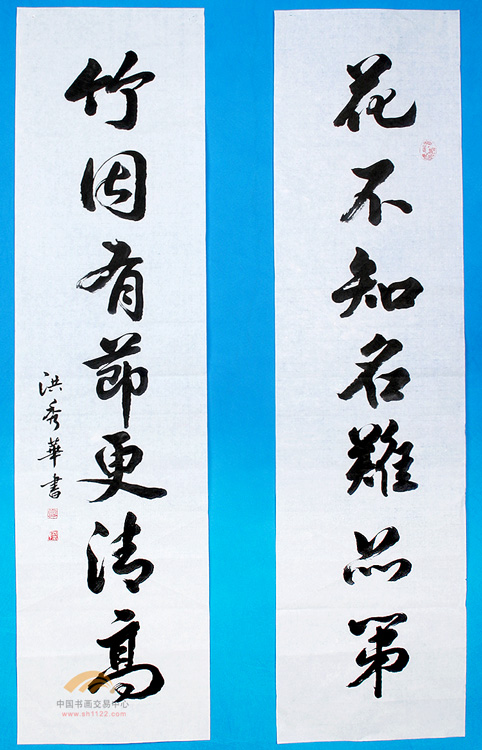 花不知名難品第
竹因有節更清高
洪秀華書
中国书画交易中心
www.sh1122.com